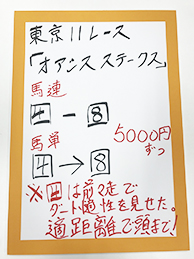 東京11レース
「オアシスステークス」
馬連
4 - 8
馬単
4 → 8
5000円
ずつ
※4は前2走で
ダート適性を見せた。
適距離で頭まで!